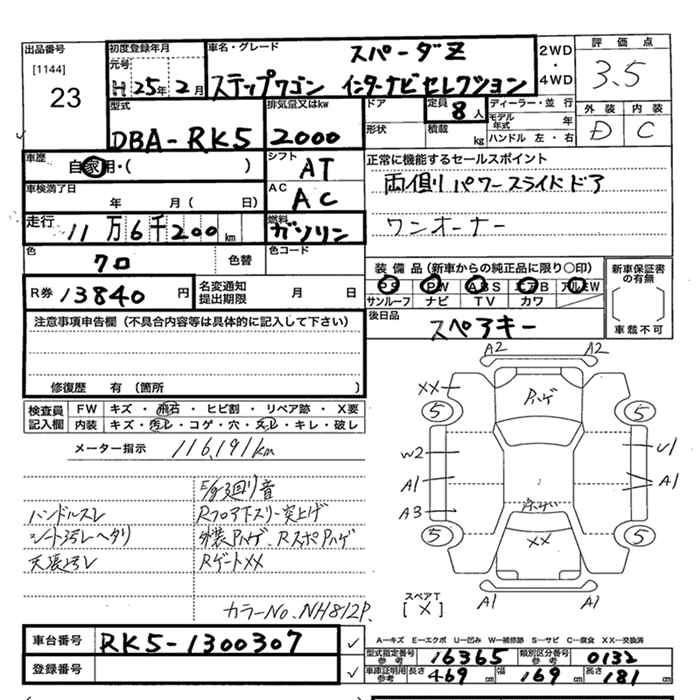 出品番号
[1144]
23
初度登録年月
元号
H 25年 2月
車名・グレード
スパーダZ
ステップワゴン インターナビセレクション
2WD
・
4WD
評価点
3.5
外装 内装
D C
型式
DBA-RK5
排気量又はkw
2000
ドア
形状
定員
8人
積載
kg
ディーラー・並行
モデル年式 年
ハンドル 左・右
車歴
自家用・( )
シフト
AT
車検満了日
年 月( 日)
AC
AC
正常に機能するセールスポイント
両側パワースライドドア
ワンオーナー
走行
11万6千200km
燃料
ガソリン
色
クロ
色替
色コード
R券 13840円
名変通知
提出期限
月 日
装備品(新車からの純正品に限り○印)
PS PW ABS エアB アルミW
サンルーフ ナビ TV カワ
新車保証書
の有無
車載不可
後日品
スペアキー
注意事項申告欄(不具合内容等は具体的に記入して下さい)
修復歴 有(箇所 )
検査員
記入欄
FW キズ・飛石・ヒビ割・リペア跡・X要
内装 キズ・汚レ・コゲ・穴・スレ・キレ・破レ
メーター指示 116,191km
E/g 廻り音
ハンドルスレ Rフロア下スリ・突上げ
シート汚レヘタリ 外装Pハゲ、RスポPハゲ
天張汚レ RゲートXX
カラーNo. NH812P.
A2 A2
XX
Pハゲ
5 5
W2 U1
A1 A1
A3
XX
5 5
A1 A1
スペアT
[X]
車台番号
RK5-1300307
登録番号
A−キズ E−エクボ U−凹み W−補修跡 S−サビ C−腐食 XX−交換済
型式指定番号
参考
16365
類別区分番号
参考
0132
車庫証明用
参考
長さ 469cm 幅 169cm 高さ 181cm